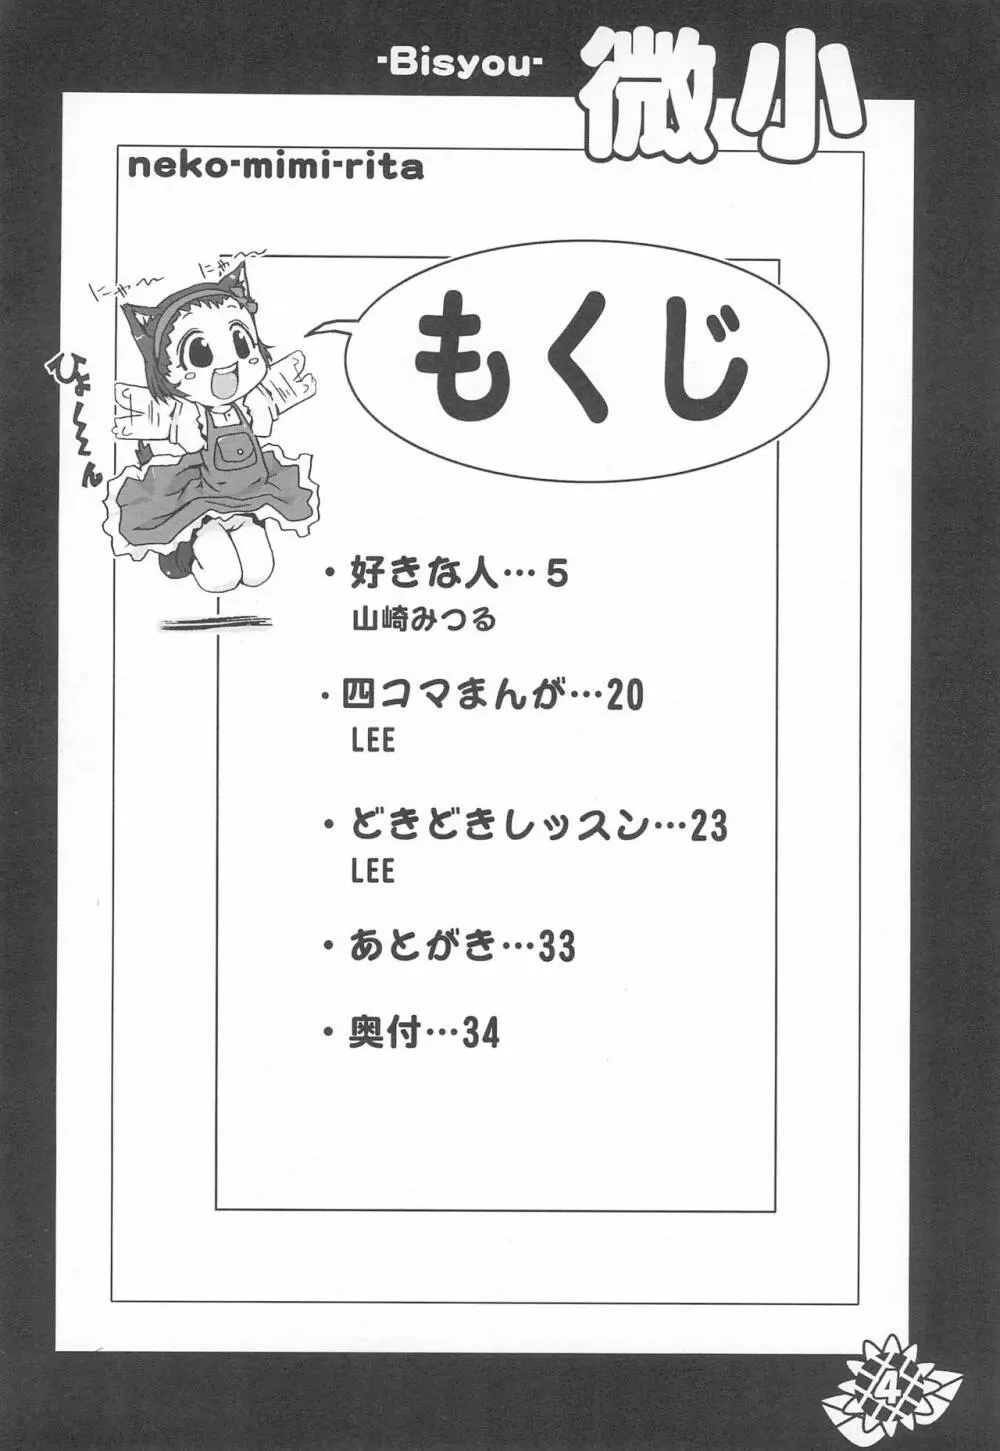 -Bisyou- 微小
neko-mimi-rita
にゃ〜
にゃ〜
ひょーーん
もくじ
・好きな人…5
山崎みつる
・四コマまんが…20
LEE
・どきどきレッスン…23
LEE
・あとがき…33
・奥付…34
4